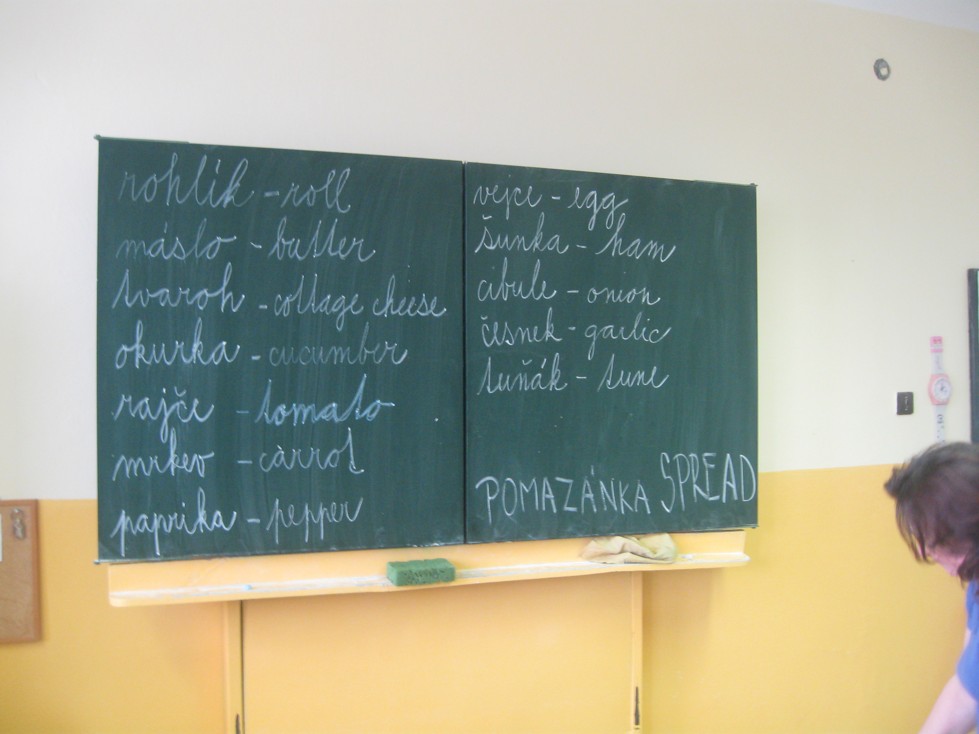 rohlík - roll
máslo - butter
tvaroh - cottage cheese
okurka - cucumber
rajče - tomato
mrkev - carrot
paprika - pepper
vejce - egg
šunka - ham
cibule - onion
česnek - garlic
tuňák - tune
POMAZÁNKA SPREAD